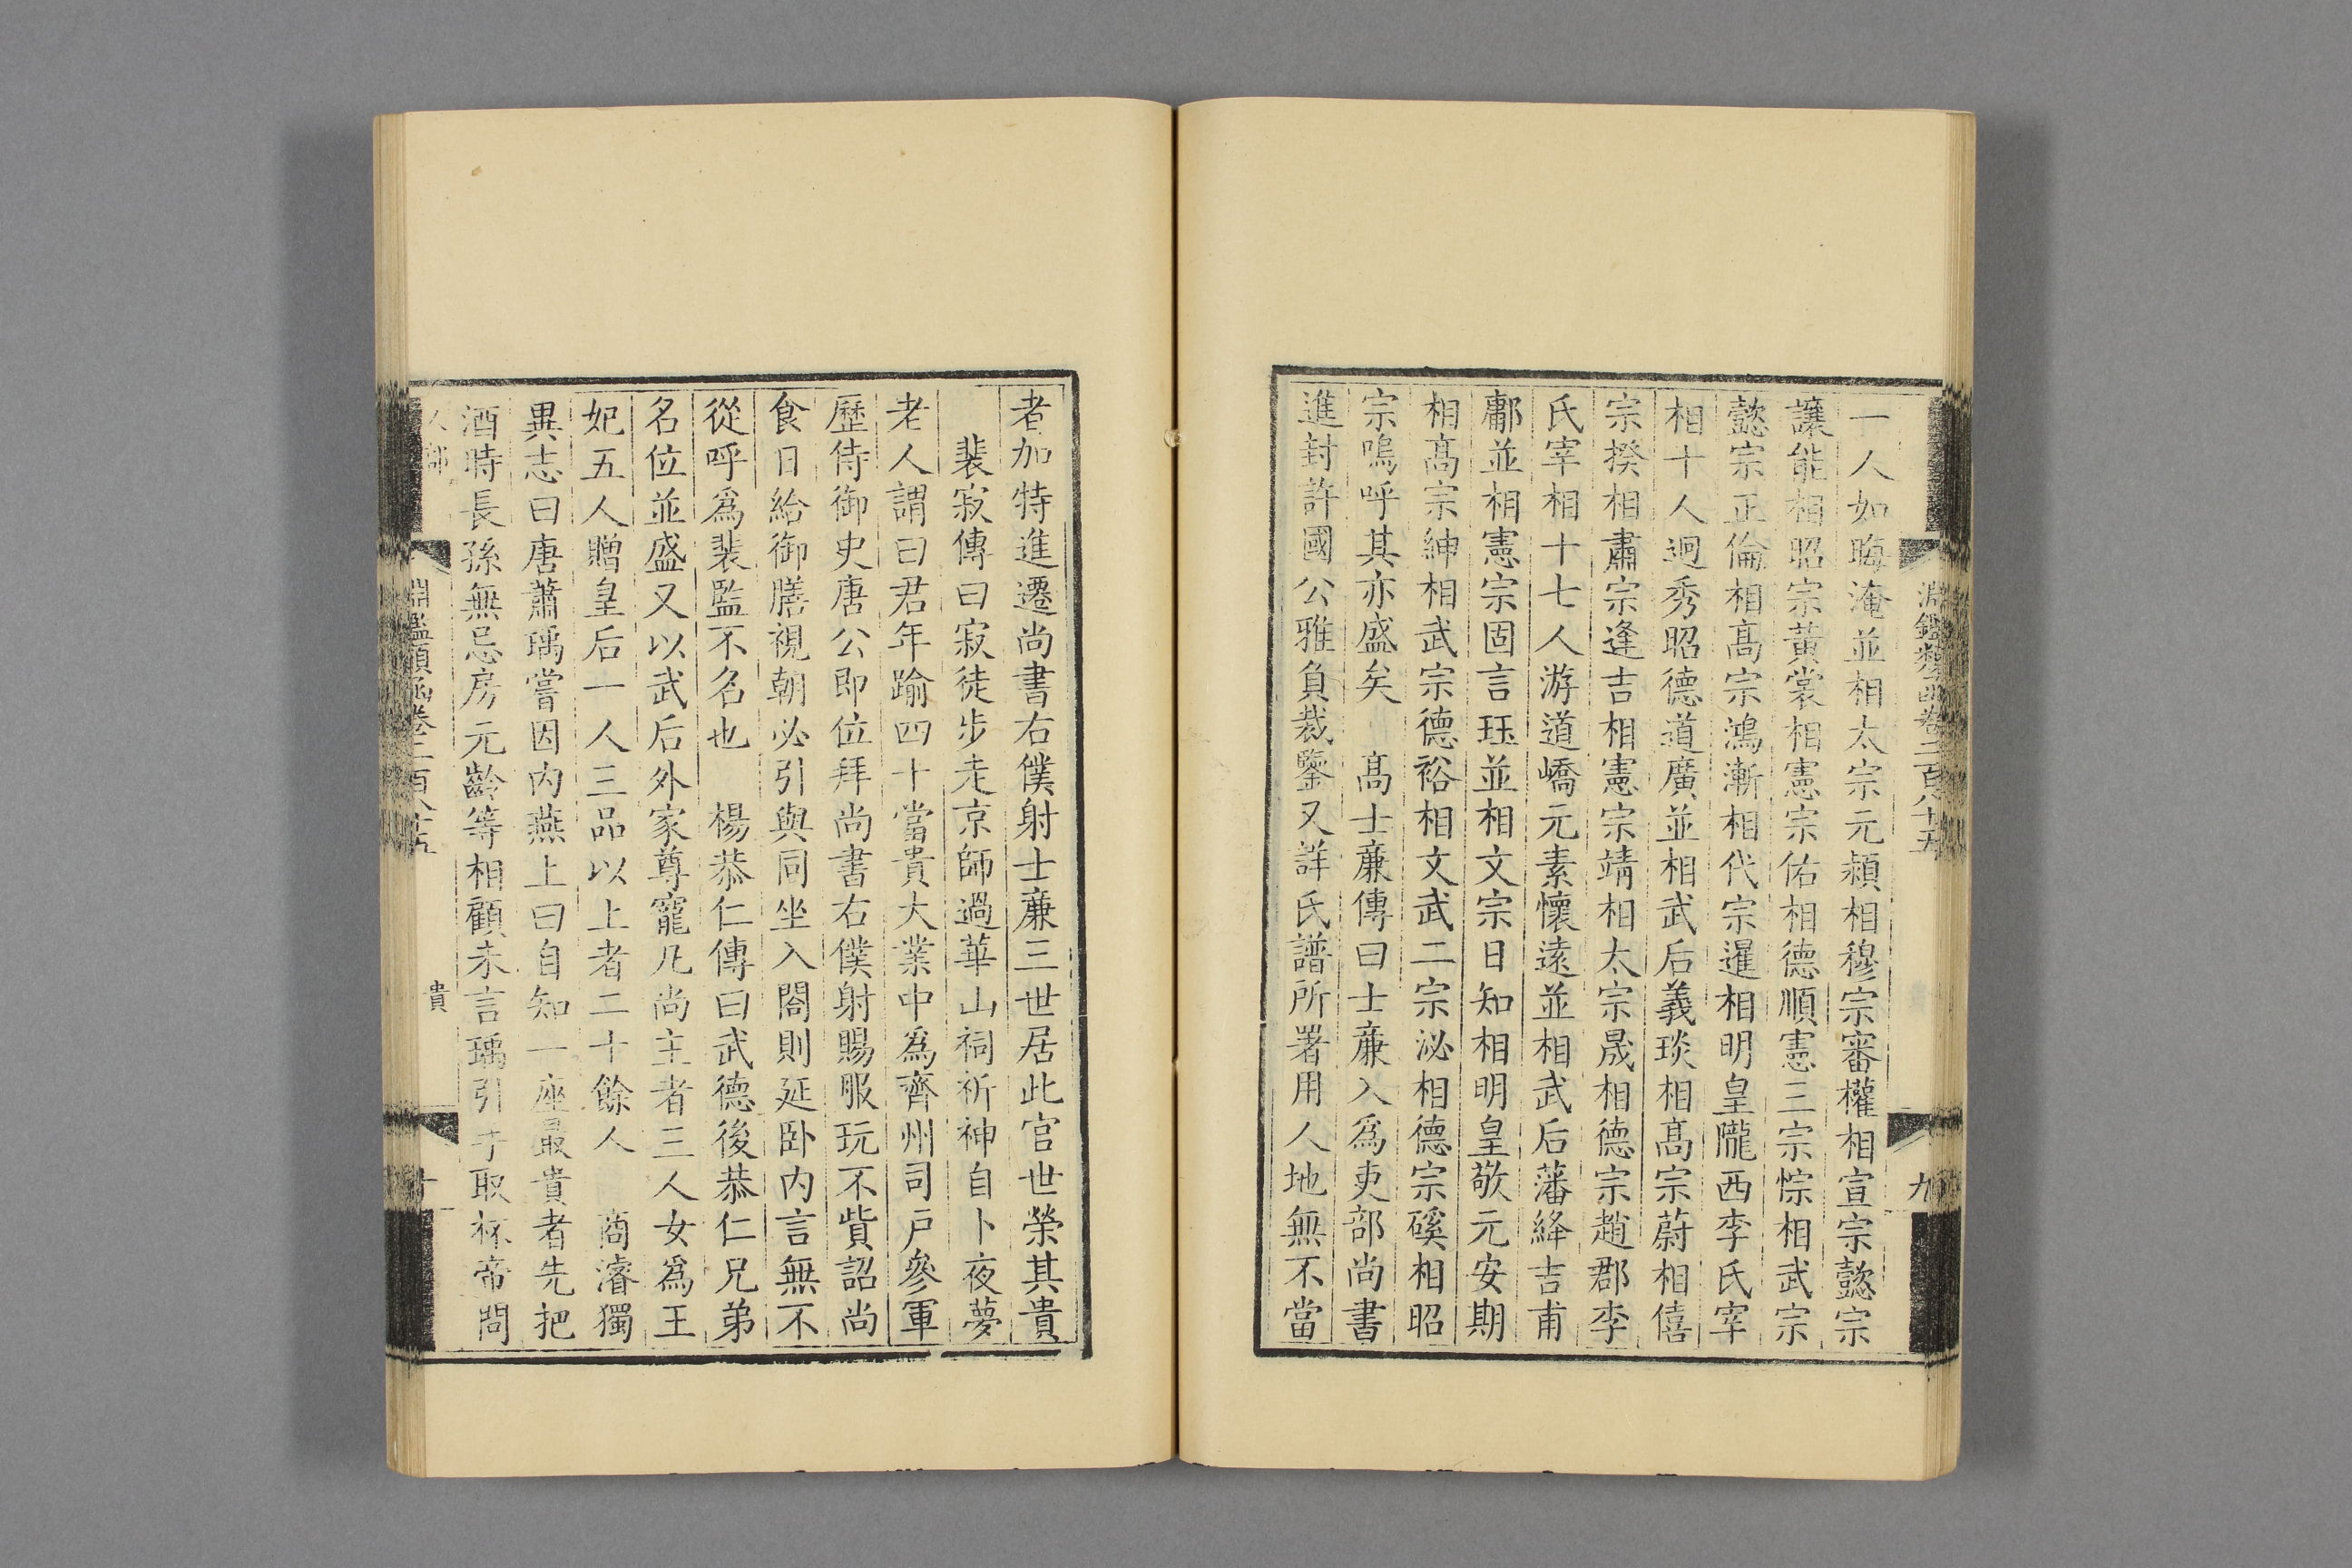 淵鑑類函卷二百八十五
九
一人如晦淹並相太宗元穎相穆宗審權相宣宗懿宗
讓能相昭宗黃裳相憲宗佑相德順憲三宗悰相武宗
懿宗正倫相髙宗鴻漸相代宗暹相明皇隴西李氏宰
相十人迥秀昭德道廣並相武后義琰相髙宗蔚相僖
宗揆相肅宗逢吉相憲宗靖相太宗晟相德宗趙郡李
氏宰相十七人游道嶠元素懷遠並相武后藩絳吉甫
鄘並相憲宗固言珏並相文宗日知相明皇敬元安期
相髙宗紳相武宗德裕相文武二宗泌相德宗磎相昭
宗嗚呼其亦盛矣　髙士亷傳曰士亷入爲吏部尚書
進封許國公雅負裁鑒又詳氏譜所署用人地無不當
者加特進遷尚書右僕射士亷三世居此官世榮其貴
裴寂傳曰寂徒步走京師過華山祠祈神自卜夜夢
老人謂曰君年踰四十當貴大業中爲齊州司戸參軍
歷侍御史唐公即位拜尚書右僕射賜服玩不貲詔尚
食日給御膳視朝必引與同坐入閤則延卧内言無不
從呼爲裴監不名也　楊恭仁傳曰武德後恭仁兄弟
名位並盛又以武后外家尊寵凡尚主者三人女爲王
妃五人贈皇后一人三品以上者二十餘人　商濬獨
異志曰唐蕭瑀嘗因内燕上曰自知一座最貴者先把
酒時長孫無忌房元齡等相顧未言瑀引手取杯帝問
人部
淵鑑類函卷二百八十五
貴
十